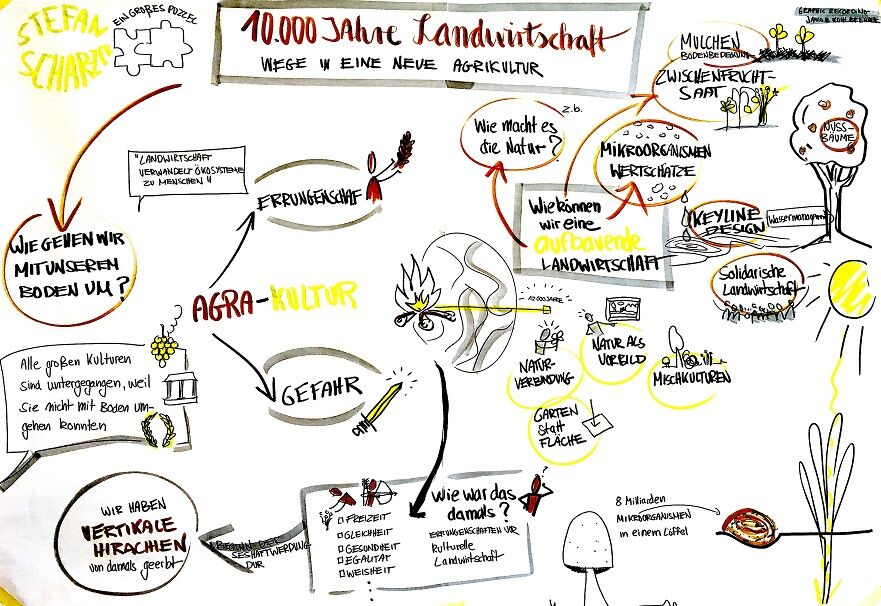 STEFAN
SCHARZ
EIN GROẞES PUZZEL
10.000 JAHRE Landwirtschaft
WEGE IN EINE NEUE AGRIKULTUR
GRAPHIC RECORDING
MULCHEN
BODENBEDECKUNG
ZWISCHENFRUCHT-
SAAT
z.b.
Wie macht es
die Natur?
MIKROORGANISMEN
WERTSCHÄTZE
NUSS-
BÄUME
"LANDWIRTSCHAFT
VERWANDELT ÖKOSYSTEME
ZU MENSCHEN"
ERRUNGENSCHAF
Wie können
wir eine
aufbauende
LANDWIRTSCHAFT
KEYLINE
DESIGN
Wassermanagement
WIE GEHEN WIR
MIT UNSEREN
BODEN UM?
Solidarische
Landwirtschaft
AGRA-KULTUR
12.000 JAHRE
NATUR-
VERBINDUNG
NATUR ALS
VORBILD
MISCHKULTUREN
GARTEN
statt
FLÄCHE
Alle großen Kulturen
sind untergegangen, weil
Sie nicht mit Boden um-
gehen konnten
GEFAHR
WIR HABEN
VERTIKALE
HIRACHEN
von damals geerbt
BEGINN DER
SESHAFTWERDUNG
DUR
FREIZEIT
GLEICHHEIT
GESUNDHEIT
EGALITÄT
WEISHEIT
Wie war das
damals?
ERRUNGENSCHAFTEN VOR
Kulturelle
Landwirtschaft
8 Milliarden
MIKROORGANISMEN
in einem Löffel